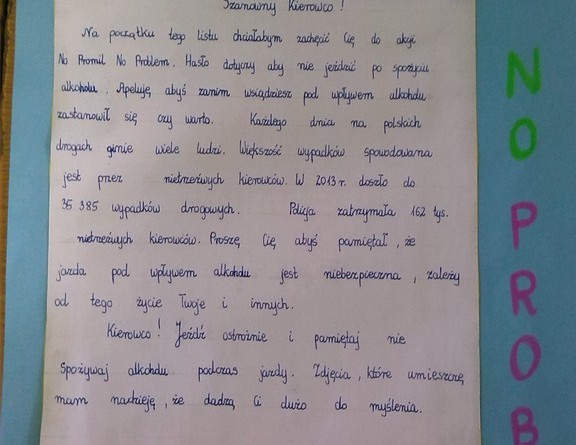 Szanowny Kierowco !
Na początku tego listu chciałabym zachęcić Cię do akcji
No Promil No Problem. Hasło dotyczy aby nie jeździć po spożyciu
alkoholu. Apeluję abyś zanim wsiądziesz pod wpływem alkoholu
zastanowił się czy warto. Każdego dnia na polskich
drogach ginie wiele ludzi. Większość wypadków spowodowana
jest przez nietrzeźwych kierowców. W 2013 r. doszło do
35 385 wypadków drogowych. Policja zatrzymała 162 tyś.
nietrzeźwych kierowców. Proszę Cię abyś pamiętał, że
jazda pod wpływem alkoholu jest niebezpieczna, zależy
od tego życie Twoje i innych.
Kierowco! Jeźdź ostrożnie i pamiętaj nie
spożywaj alkoholu podczas jazdy. Zdjęcia, które umieszczę
mam nadzieję, że dadzą Ci dużo do myślenia.
NO PROB